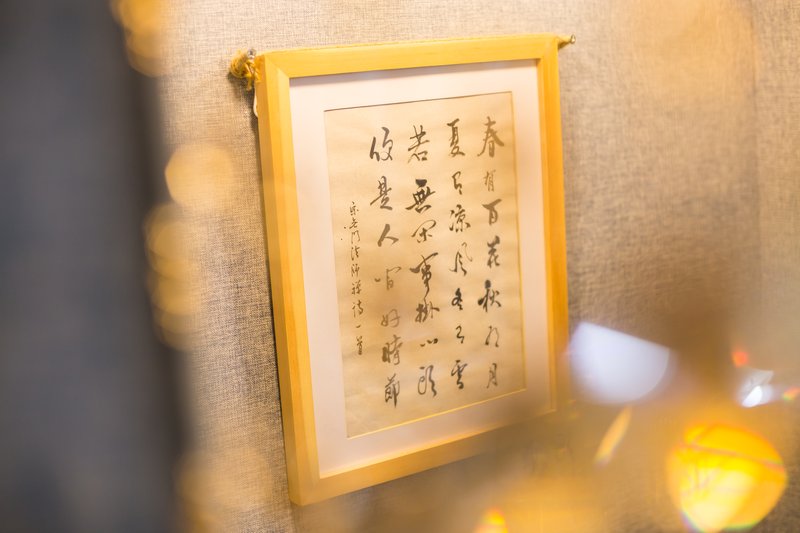 春有百花秋有月
夏有涼風冬有雪
若無閑事掛心頭
便是人間好時節
宋無門法師禪詩一首